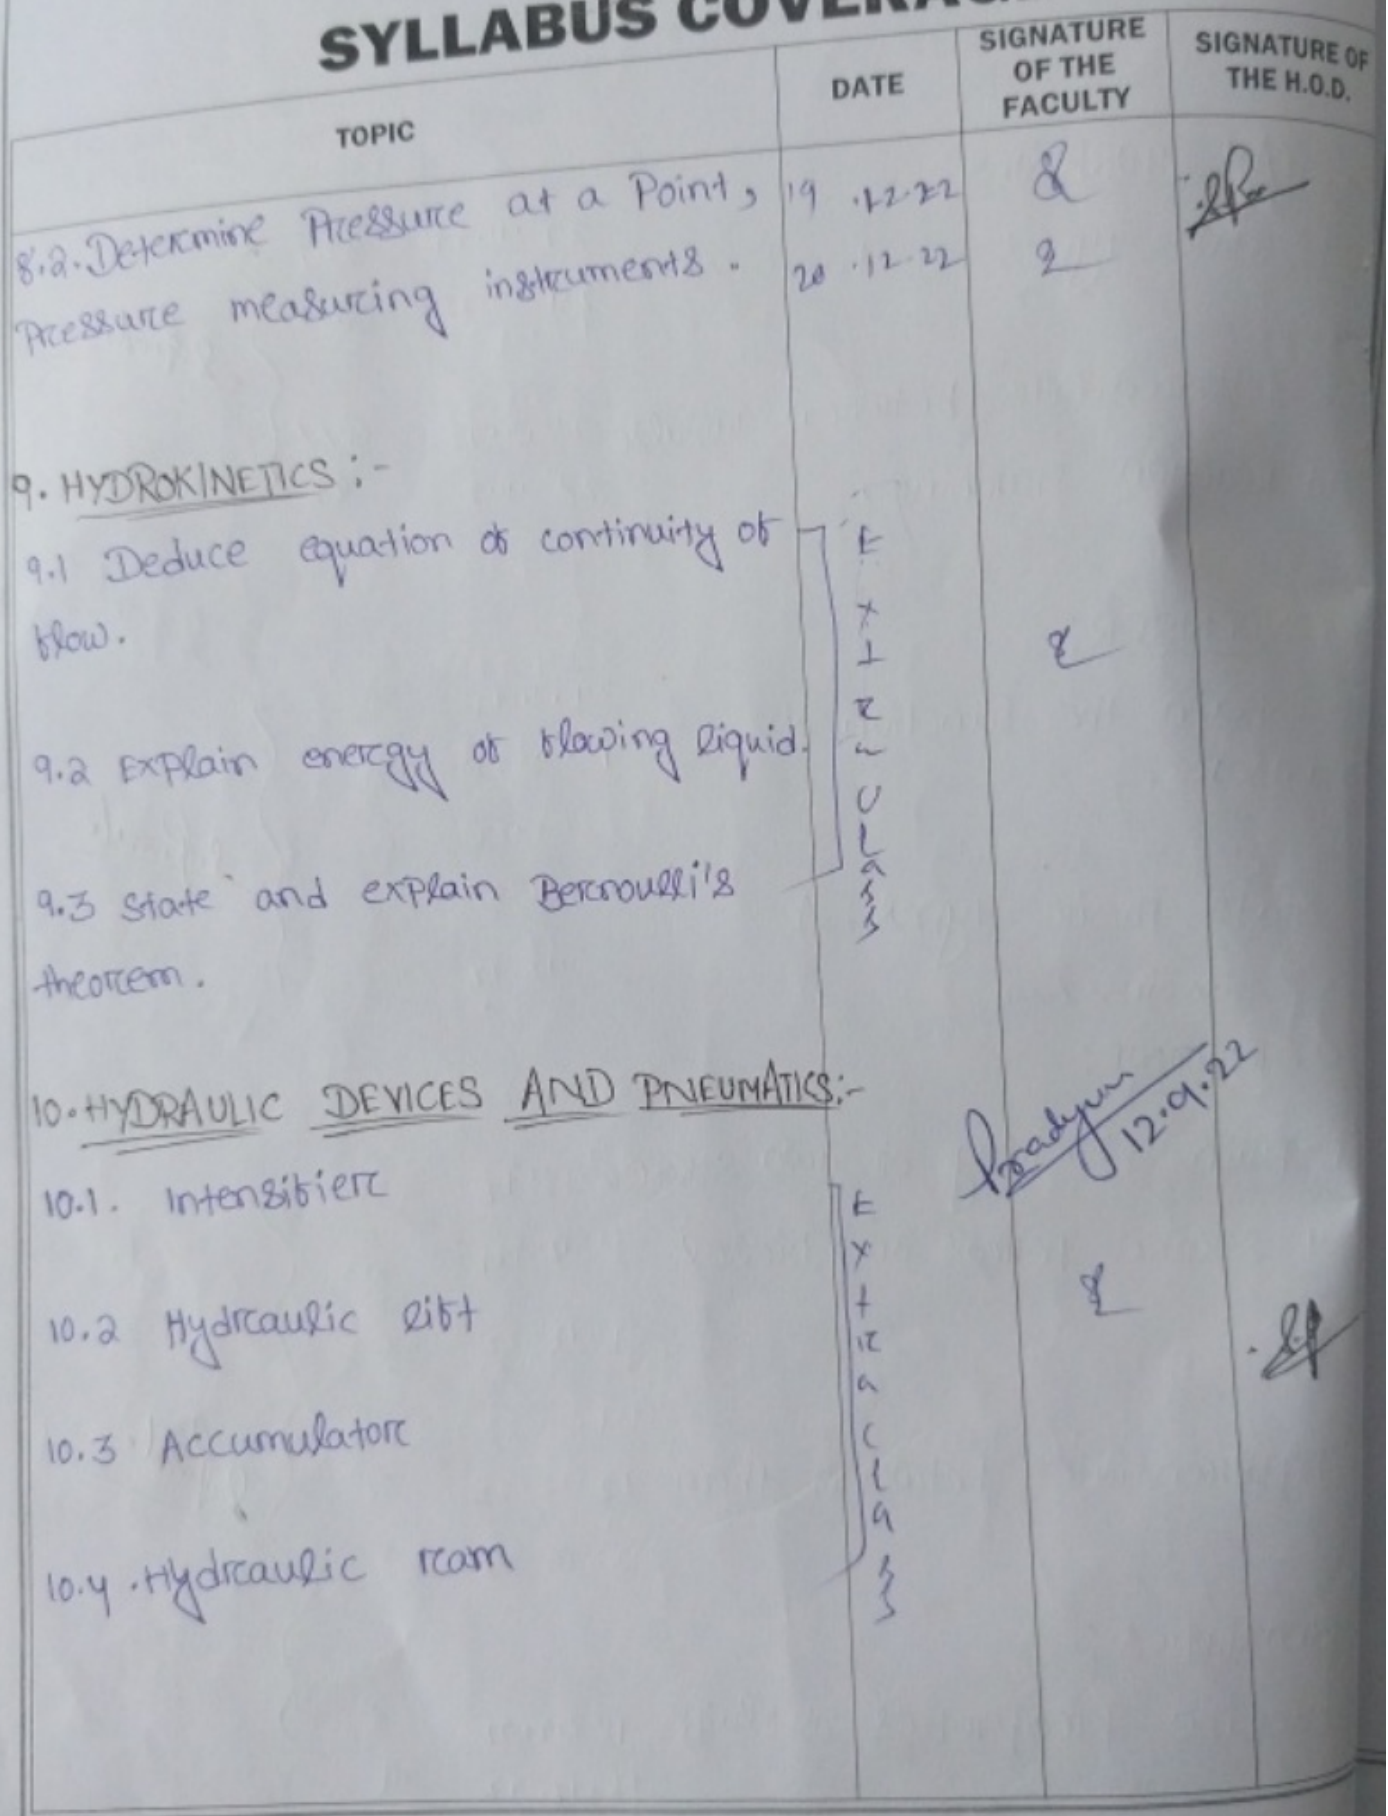 SYLLABUS COVERA
TOPIC
DATE
SIGNATURE
OF THE
FACULTY
SIGNATURE OF
THE H.O.D.
8.2. Determine Pressure at a Point, 19 .12.22
Pressure measuring instruments. 20 .12.22
9. HYDROKINETICS :-
9.1 Deduce equation of continuity of
flow.
9.2 Explain energy of flowing liquid.
9.3 State and explain Bernoulli's
theorem.
Extra Class
10. HYDRAULIC DEVICES AND PNEUMATICS:-
Pradyum
12.9.22
10.1. Intensifier
10.2 Hydraulic lift
10.3 Accumulator
10.4. Hydraulic ram
Extra Class